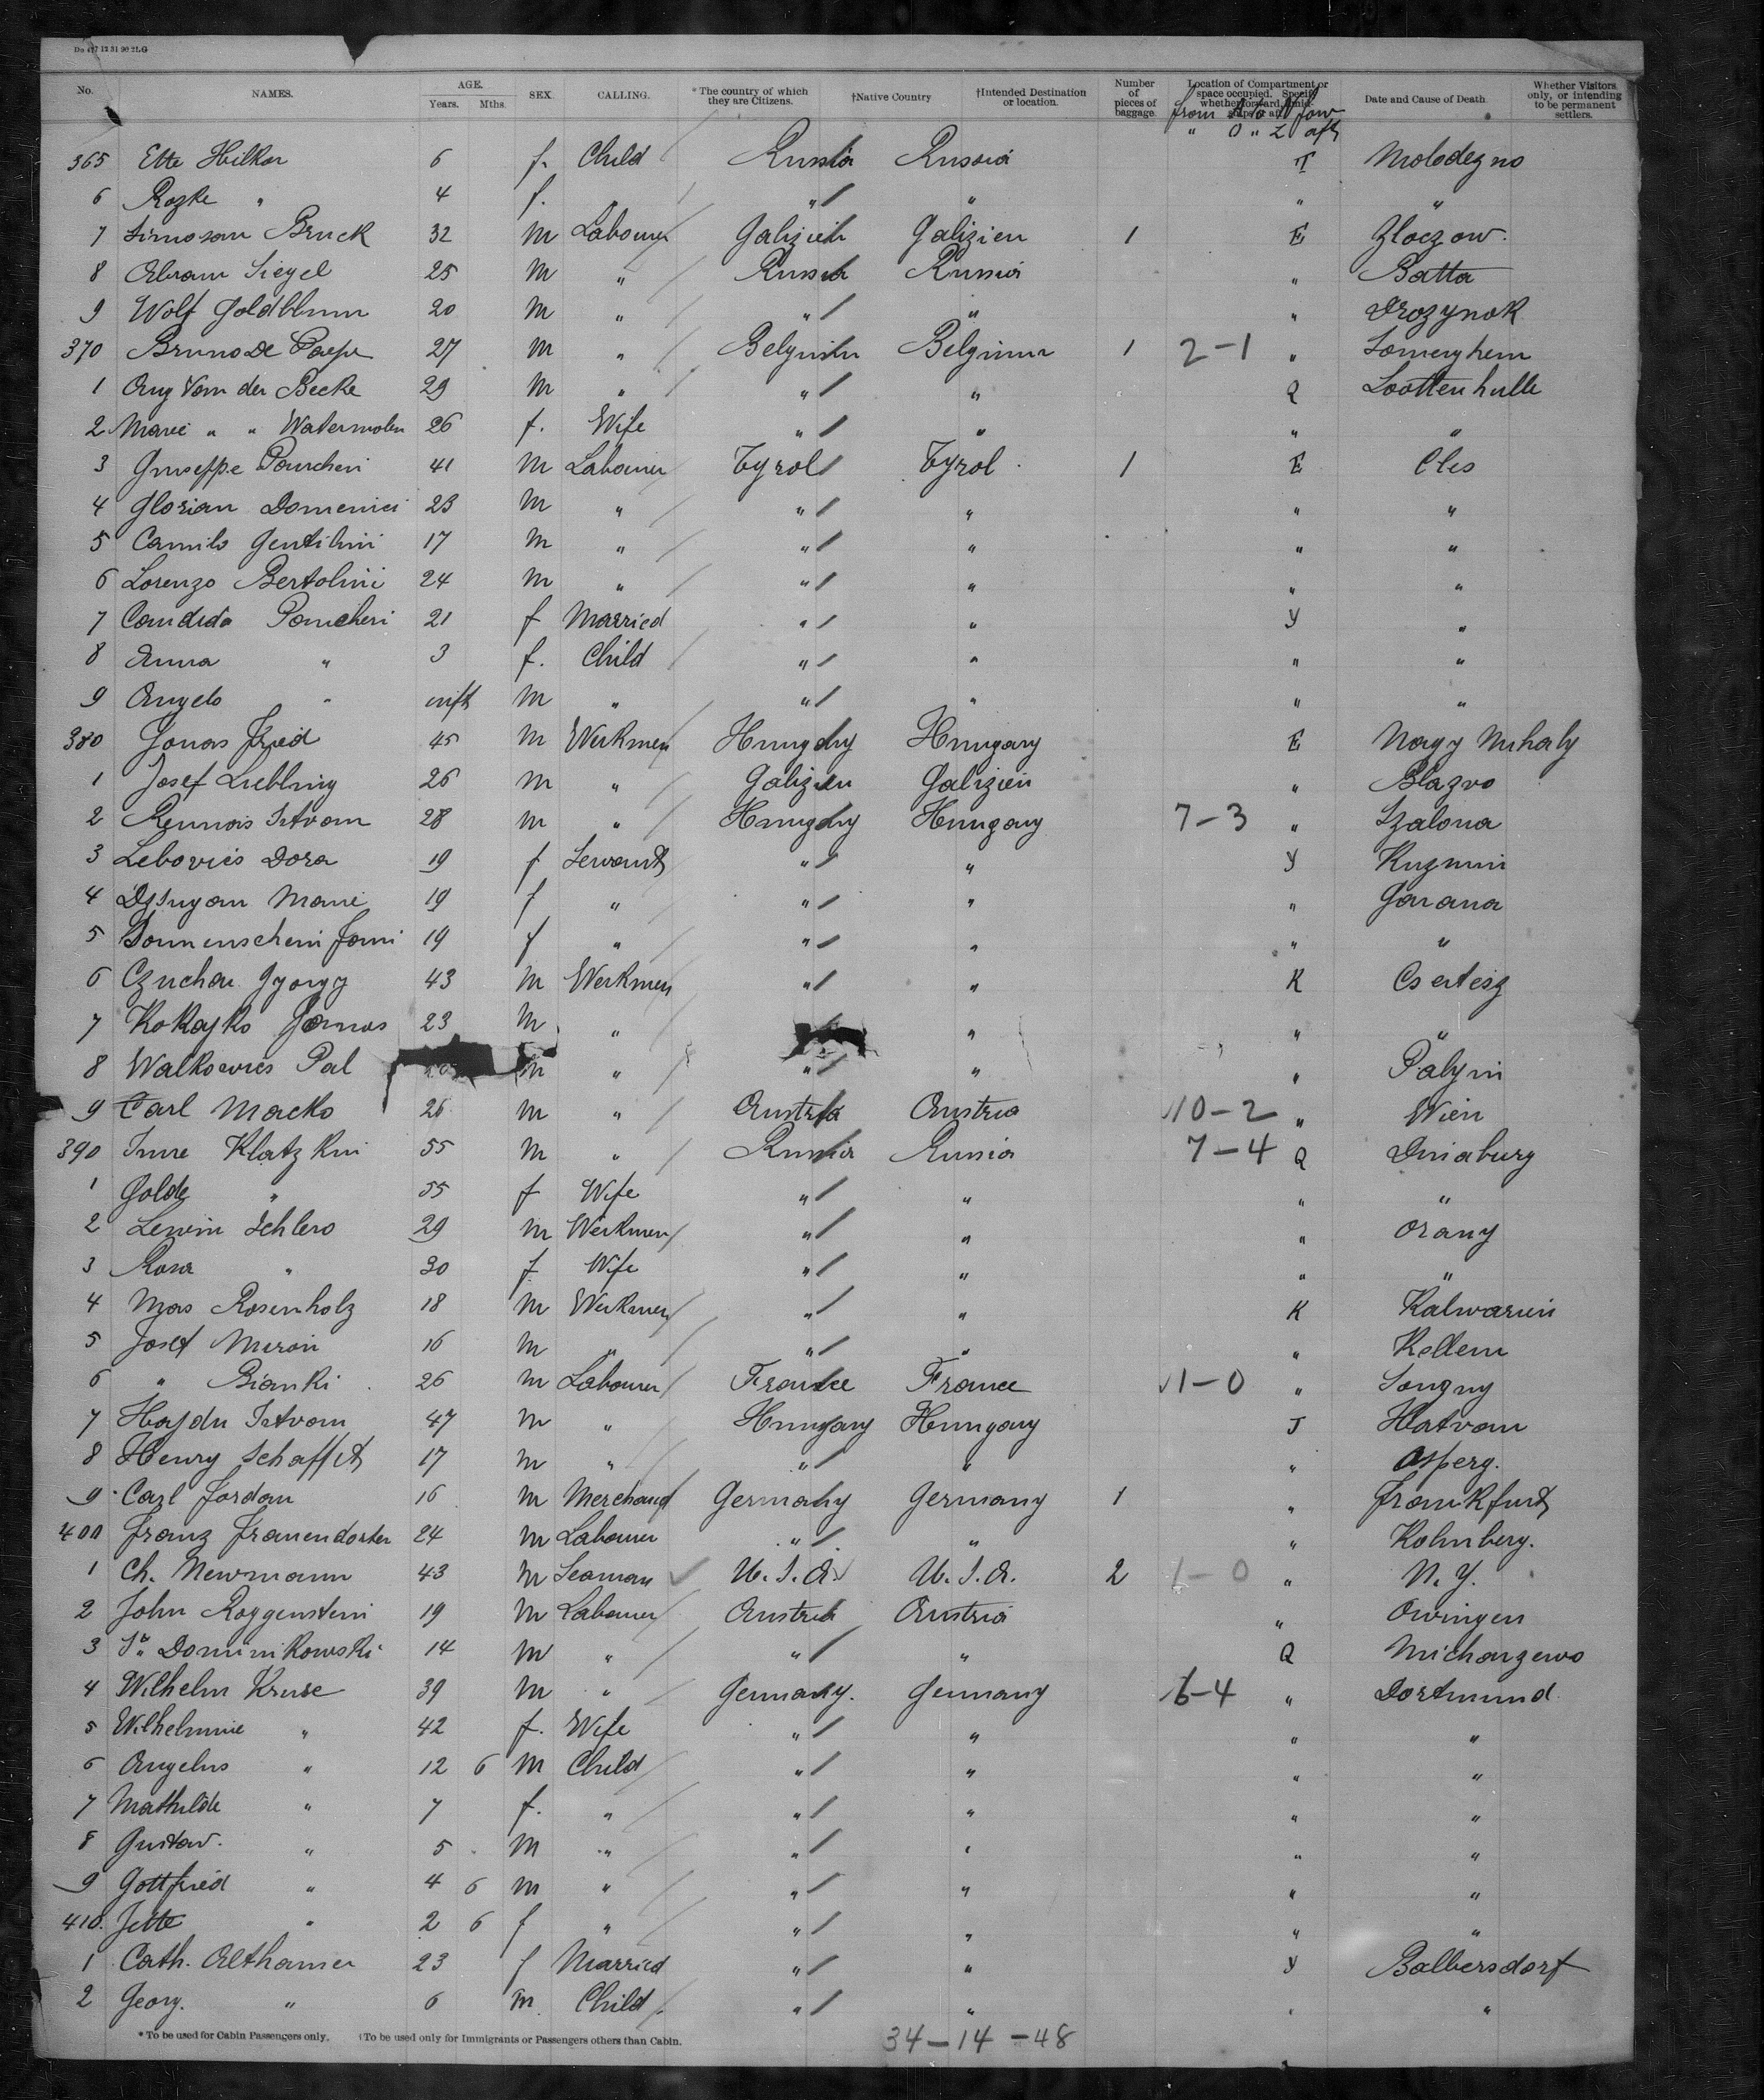 Do 427 12 31 90 2LG
No. NAMES. AGE. Years. Mths. SEX. CALLING. *The country of which they are Citizens. †Native Country †Intended Destination or location. Number of pieces of baggage Location of Compartment or space occupied. Date and Cause of Death Whether Visitors only, or intending to be permanent settlers.
from A to N forw
" O " Z aft
365 Ette Hilkor 6 f. Child Russia Russia T Molodezno
6 Rozke " 4 f. " " " " "
7 Bruck 32 M Labourer Galizien Galizien 1 E Zloczow.
8 Abram Siegel 25 M " Russia Russia " Batta
9 Wolf Goldblum 20 M " " " " Drozynok
370 Bruno De Paepe 27 M " Belgium Belgium 1 2-1 " Somerghem
1 Aug Van der Becke 29 M " " " Q Loottenhulle
2 Marie " " Watermolen 26 f. Wife " " " "
3 Giuseppe Pancheri 41 M Labourer Tyrol Tyrol 1 E Cles
4 Glorian Domenici 23 M " " " " "
5 Camilo Gentilini 17 M " " " " "
6 Lorenzo Bertolini 24 M " " " " "
7 Candida Pancheri 21 f Married " " Y "
8 Anna " 3 f. Child " " " "
9 Angelo " inft M " " " " "
380 Jonas Fried 45 M Workmen Hungary Hungary E Nagy Mihaly
1 Josef Liebling 26 M " Galizien Galizien " Blazvo
2 Istvan 28 M " Hungary Hungary 7-3 " Szalona
3 Lebovics Dora 19 f Servant " " Y Kuzmin
4 Marie 19 f " " " " Garana
5 Sonnenschein Fani 19 f " " " " "
6 Czucha Gyorgy 43 M Workmen " " K Csertesz
7 Kokajko Janos 23 M " " " "
8 Walkowics Pal M " " " " Palyin
9 Carl Macko 26 M " Austria Austria 10-2 " Wien
390 Klatzkin 55 M " Russia Russia 7-4 Q Dünaburg
1 Golde " 55 f Wife " " " "
2 Lewin Schlero 29 M Workmen " " " Orany
3 Rosa " 30 f Wife " " " "
4 Mos Rosenholz 18 M Workmen " " K Kalwarien
5 Josef Meron 16 M " " " " Kellem
6 " Bianki 26 M Labourer France France 1-0 " Songny
7 Hajdu Istvan 47 M " Hungary Hungary J Hatvan
8 Henry Schaffet 17 M " " " " Asperg.
9 Carl Jordan 16 M Merchant Germany Germany 1 " Frankfurt
400 Franz Frauendorfer 24 M Labourer " " " Kohnberg.
1 Ch. Newmann 43 M Seaman U.S.A. U.S.A. 2 1-0 " N.Y.
2 John Roggenstein 19 M Labourer Austria Austria " Owingen
3 Dominikowski 14 M " " " Q Michorzewo
4 Wilhelm Kruse 39 M " Germany. Germany 6-4 " Dortmund
5 Wilhelmine " 42 f. Wife " " " "
6 Angelus " 12 6 M Child " " " "
7 Mathilde " 7 f. " " " " "
8 Gustav. " 5 M " " " " "
9 Gottfried " 4 6 M " " " " "
410. Jette " 2 6 f " " " " "
1 Cath. Althamer 23 f Married " " Y Balbersdorf
2 Georg. " 6 M. Child " " " "
*To be used for Cabin Passengers only. †To be used only for Immigrants or Passengers others than Cabin. 34-14-48